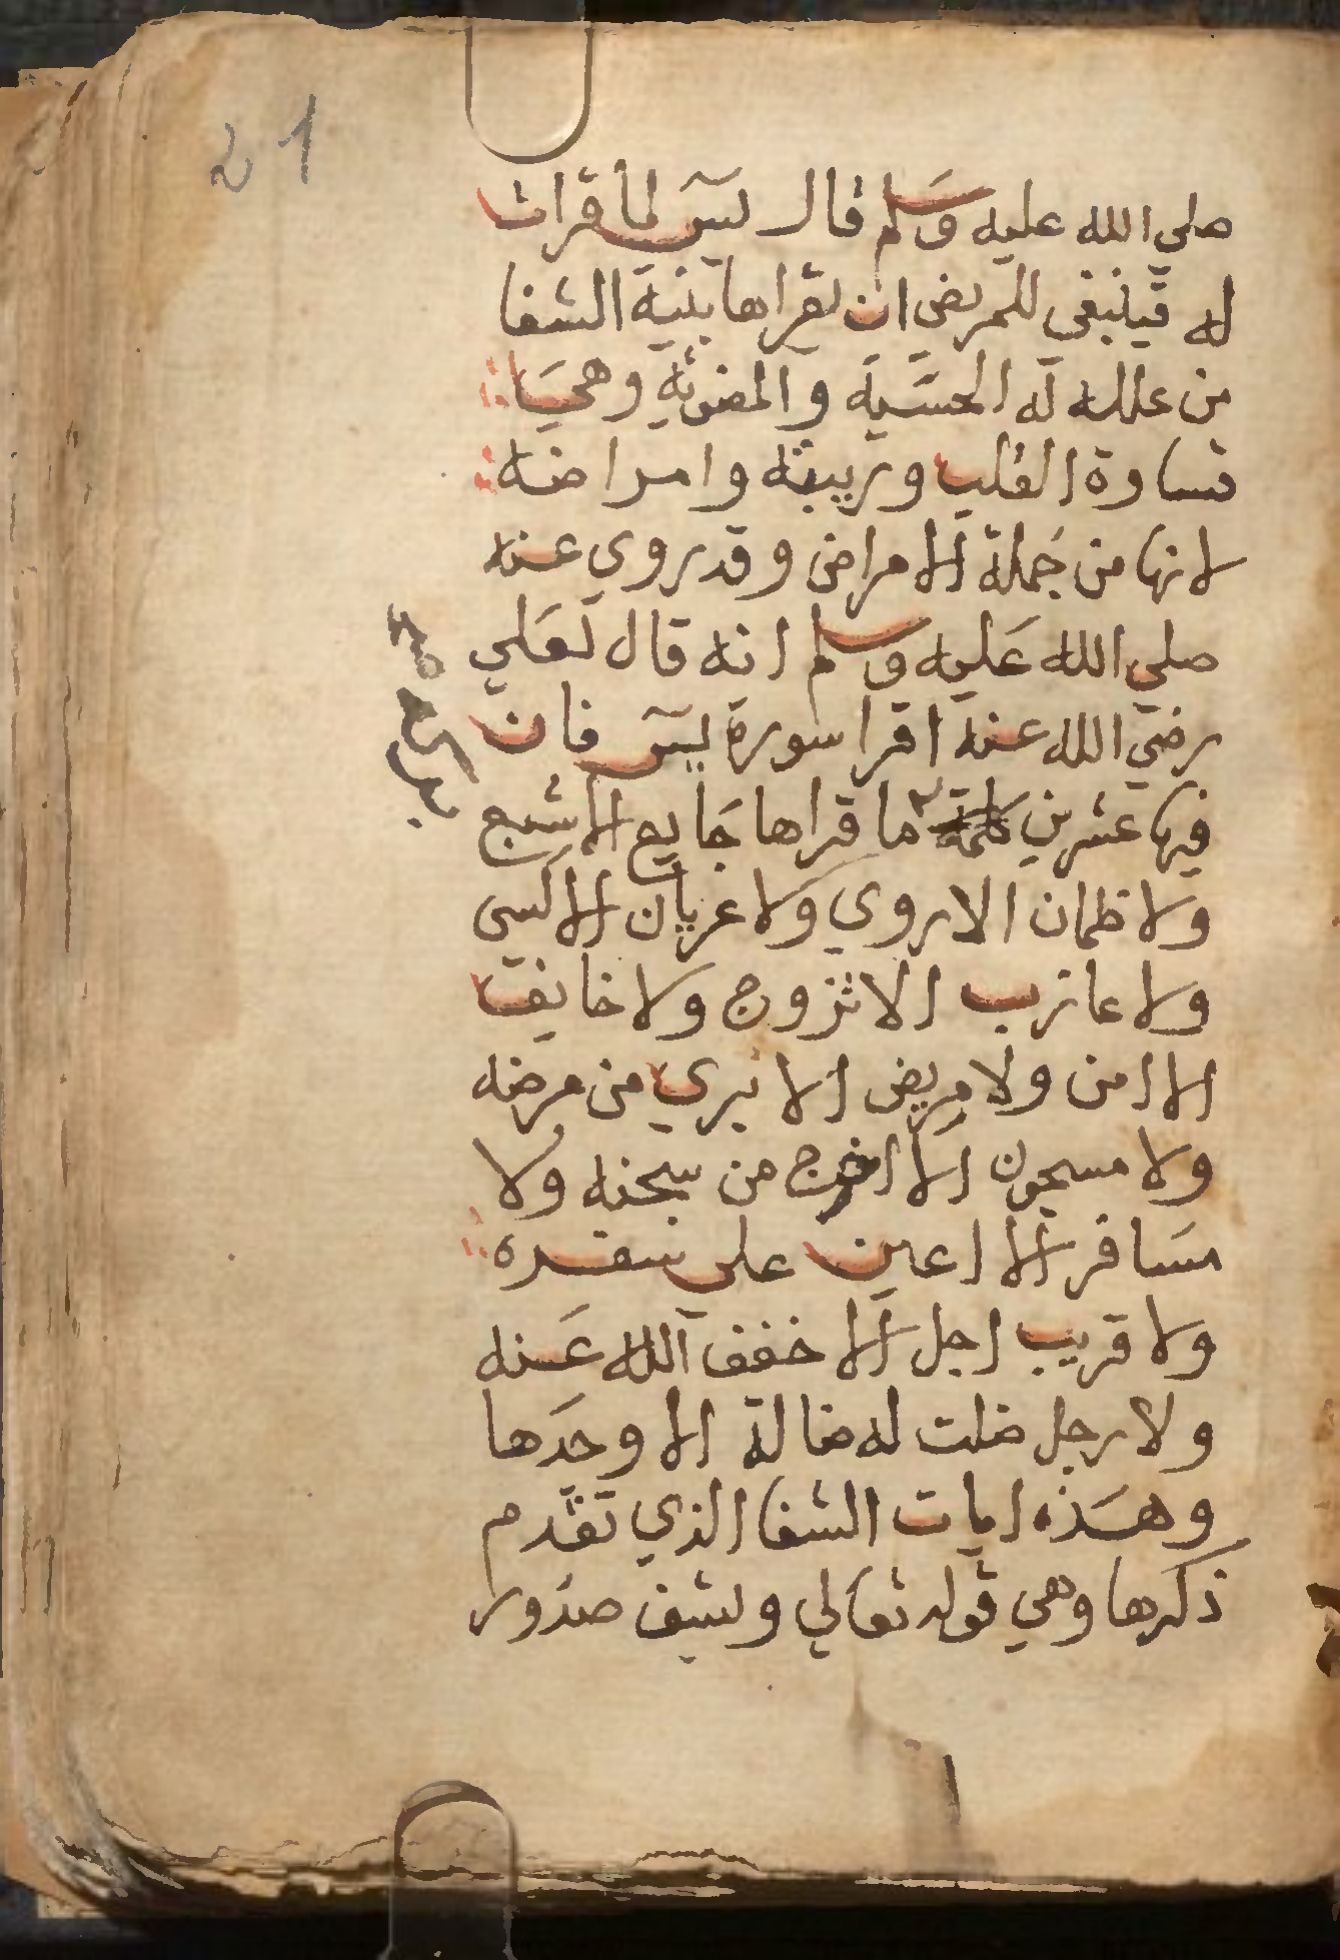 21
صلى الله عليه وسلم قال يسٓ لما قرات
له فينبغي للمريض ان يقراها بنية الشفا
من علله له الحسَّية والمعنوية وهيَ
قساوة القلب وريبته وامراضه
لانها من جُملة الامراض وقد روي عنه
صلي الله عَليه وسلم انه قال لعَلي
رضي الله عنه اقرا سورة يسٓ فان
فيها عشرين ما قراها جَايع الا شبع
ولا ظمان الا روي ولا عريان الا كسي
ولا عازب الا تزوج ولا خايف
الا امن ولا مريض الا بري من مرضه
ولا مسجون الا اخرج من سجنه ولا
مسَافر الا اعين علي سفره
ولا قريب اجل الا خفف الله عَنه
ولا رجل ضلت له ضالة الا وجَدها
وهَذه ايات الشفا الذي تقدم
ذكرها وهي قوله تعَالي ويشف صدُور